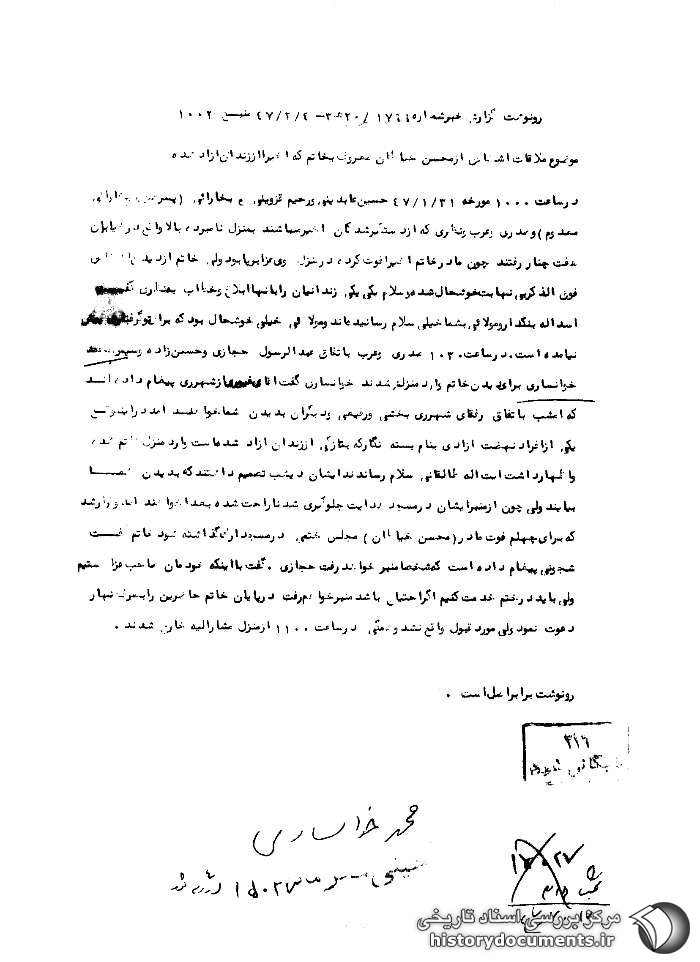 رونوشت گزارش خبر شماره ۱۷۶۶۴ /۲۰ه‍ ۳ – ۴۷/۲/۴ منبع ۱۰۰۲
موضوع ملاقات اشخاص از محسن معروف بخاتم که اخیرا از زندان ازاد شده
در ساعت ۱۰۰۰ مورخه ۴۷/۱/۳۱ حسین عابدینی و رحیم قزوینی و بخارائی (پسرعموی بخارائی
معدوم) و مدری و عرب ونظری که از دستگیرشدگان اخیر میباشند بمنزل نامبرده بالا واقع در خیابان
هفت چنار رفتند چون مادر خاتم اخیرا فوت کرده در منزل وی عزا برپا بود ولی خاتم از دیدن اشخاص
فوق الذکر بی نهایت خوشحال شد و سلام یکی یکی زندانیان را بانها ابلاغ و خطاب ببخارائی گفت
اسداله بنگدار و مولائی بشما خیلی سلام رسانیده‌اند و مولائی خیلی خوشحال بود که برای تو گرفتاری پیش
نیامده است. در ساعت ۱۰۳۰ مدری وعرب باتفاق عبدالرسول حجازی وحسین زاده و
خوانساری برای دیدن خاتم وارد منزلش شدند خوانساری گفت اقای از شهرری پیغام داده اند
که امشب باتفاق رفقای شهرری بخشی ورفیعی و دیگران بدیدن شما خواهند امد در اینموقع
یکی از افراد نهضت ازادی بنام بسته نگار که بتازگی از زندان ازاد شده است وارد منزل خاتم شده
و اظهار داشت ایت اله طالقانی سلام رساندند ایشان دیشب تصمیم داشتند که بدیدن شما
بیایند ولی چون از منبر ایشان در مسجد هدایت جلوگیری شد ناراحت شده بعدا خواهند امد و قرار شد
که برای چهلم فوت مادر (محسن) مجلس ختمی در مسجد ارک گذاشته شود خاتم گفت
شجونی پیغام داده است که شخصا منبر خواهند رفت حجازی گفت با اینکه خودمان صاحب عزا هستیم
ولی باید در ختم خدمت کنیم اگر احتیاج باشد منبر خواهم رفت در پایان خاتم حاضرین را بصرف نهار
دعوت نمود ولی مورد قبول واقع نشد و همگی در ساعت ۱۱۰۰ از منزل مشارالیه خارج شدند .
رونوشت برابر اصل است .
۳۱۶
محمد خوانساری
مرکز بررسی اسناد تاریخی
historydocuments.ir